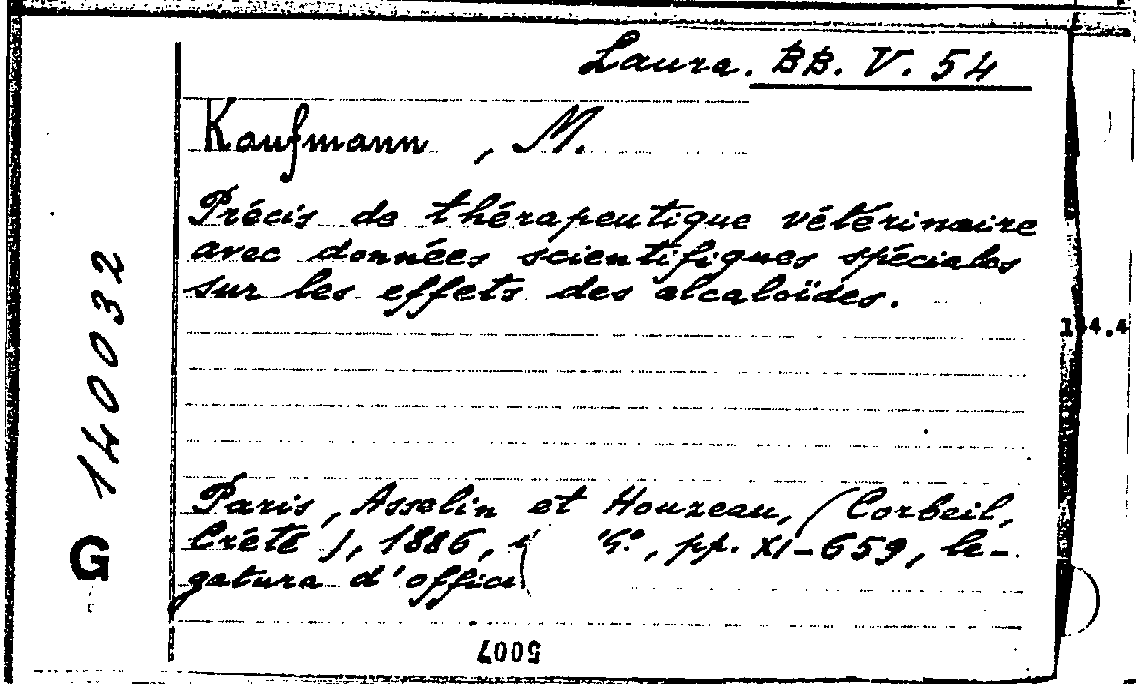 Laura. BB. V. 54
Kaufmann, M.
Précis de thérapeutique vétérinaire
avec données scientifiques spéciales
sur les effets des alcaloïdes.
144.4
Paris, Asselin et Houzeau, (Corbeil,
Crété), 1886, pp. XI-659, le-
gatura d'
G 140032
5007